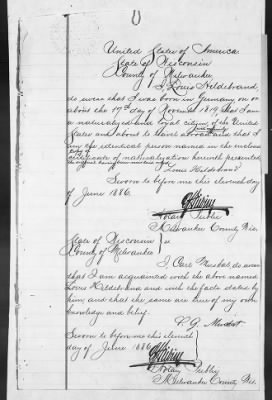 United States of America
State of Wisconsin
County of Milwaukee
I, Louis Hildebrand,
do swear that I was born in Germany on or
about the 19th day of November 1819, that I am
a naturalized and loyal citizen of the United
States and about to travel abroad and that I
am the identical person named in the enclosed
certificate of naturalization herewith presented
Louis Hildebrand
Sworn to before me this eleventh
day of June 1886.
Notary Public
Milwaukee County Wis.
State of Wisconsin
County of Milwaukee
I, Carl do swear
that I am acquainted with the above named
Louis Hildebrand and with the facts stated by
him, and that the same are true of my own
knowledge and belief.
Sworn to before me this eleventh
day of June 1886
Notary Public
Milwaukee County Wis.